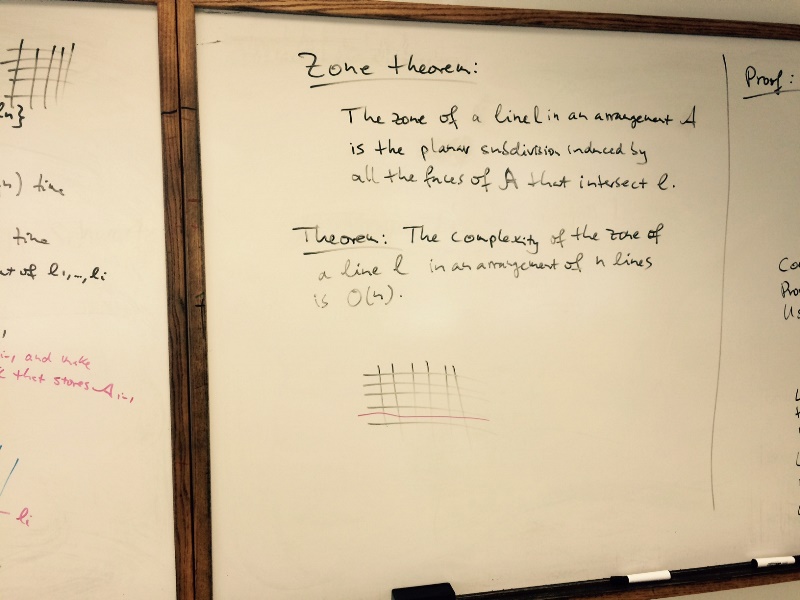 n) time
time
of l1,...,li
and make
that stores A i-1
li
Zone theorem:
The zone of a line l in an arrangement A
is the planar subdivision induced by
all the faces of A that intersect l.
Theorem: The complexity of the zone of
a line l in an arrangement of n lines
is O(n).
Proof: